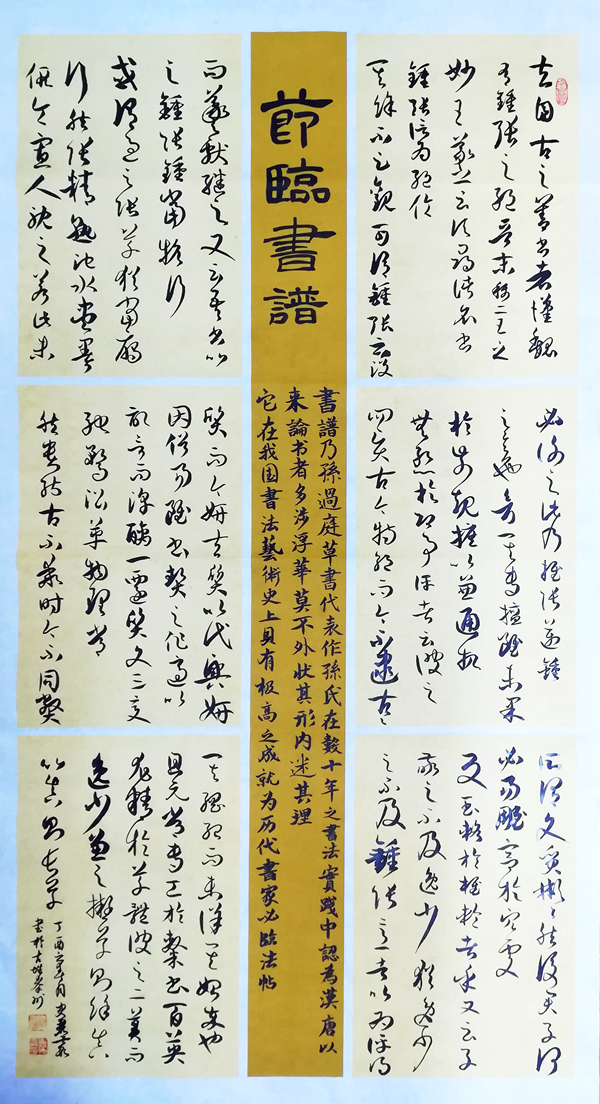 夫自古之善書者漢魏
有鍾張之絕晉末稱二王之
妙王羲之云頃尋諸名書
鍾張信為絕倫
其餘不足觀可謂鍾張云沒
而羲獻繼之又云吾書比
之鍾張鍾當抗行
或謂過之張草猶當雁
行然張精熟池水盡墨
假令寡人耽之若此未
必後之此乃推張邁鍾
之意也考其專擅雖未果
於前規摭以兼通故
無慙於即事評者云彼之
四賢古今特絕而今不逮古古
質而今妍夫質以代興妍
因俗易雖書契之作適以
記言而淳醨一遷質文三變
馳騖沿革物理常
然貴能古不乖時今不同弊
所謂文質彬彬然後君子何
必易雕宮於穴處
反玉輅於椎輪者乎又云子
敬之不及逸少猶逸少
之不及鍾張意者以為評得
其綱紀而未詳其始末也
且元常專工於隸書百英
尤精於草體彼之二美而
逸少兼之擬草則餘真
比真則長草
丁酉
書於
節臨書譜
書譜乃孫過庭草書代表作孫氏在數十年之書法實踐中認為漢唐以
来論书者多涉浮華莫不外狀其形内迷其理
它在我国書法藝術史上具有极高之成就为历代書家必临法帖